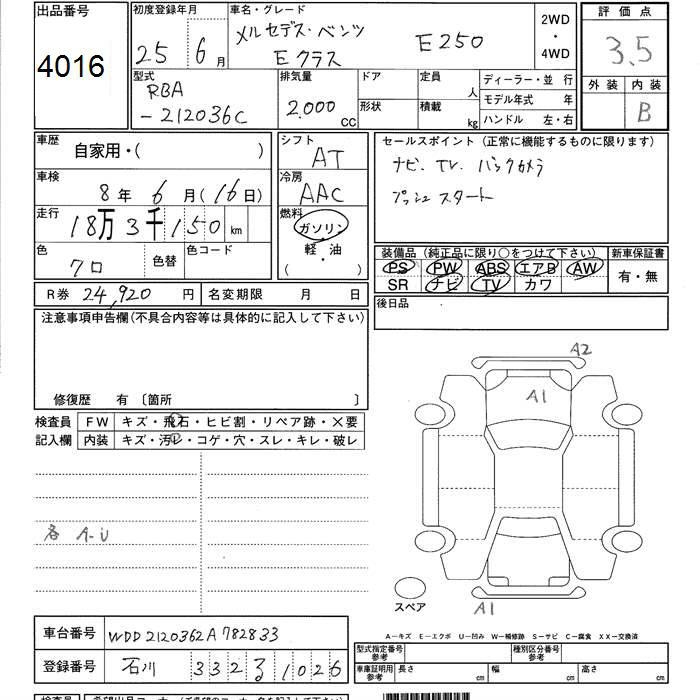 出品番号
4016
初度登録年月
25年 6月
車名・グレード
メルセデス・ベンツ
Eクラス E250
2WD
・
4WD
評価点
3.5
外装 内装
B
型式
RBA
-212036C
排気量
2.000 CC
ドア
形状
定員 人
積載 kg
ディーラー・並 行
モデル年式 年
ハンドル 左・右
車歴
自家用・( )
車検
8年 6月(16日)
走行
18万3千150km
色
クロ
色替
色コード
シフト
AT
冷房
AAC
燃料
ガソリン
・
軽・油
( )
セールスポイント (正常に機能するものに限ります)
ナビ. TV. バックカメラ
プッシュスタート
装備品 (純正品に限り○をつけて下さい)
PS PW ABS エアB AW
SR ナビ TV カワ
新車保証書
有・無
R券 24,920 円
名変期限 月 日
後日品
注意事項申告欄(不具合内容等は具体的に記入して下さい)
修復歴 有 〔箇所 〕
検査員
記入欄
FW キズ・飛石・ヒビ割・リペア跡・×要
内装 キズ・汚レ・コゲ・穴・スレ・キレ・破レ
各 A-U
A2
A1
A1
スペア
A―キズ E―エクボ U―凹み W―補修跡 S―サビ C―腐食 XX―交換済
車台番号 WDD2120362A782833
登録番号 石川 332 る 1026
型式指定番号
参考
種別区分番号
参考
車庫証明用
参考
長さ cm
幅 cm
高さ cm